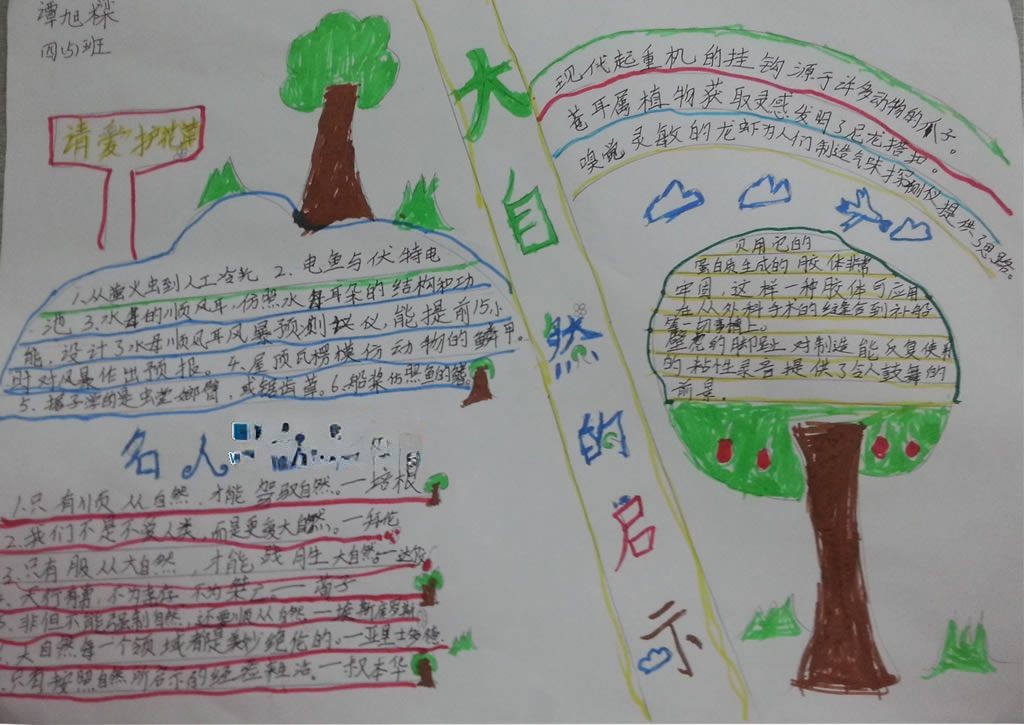 谭旭
四(5)班
请爱护花草
大自然的启示
现代起重机的挂钩源于许多动物的爪子。
苍耳属植物获取灵感发明了尼龙搭扣。
嗅觉灵敏的龙虾为人们制造气味探测仪提供了思路。
1.从萤火虫到人工冷光 2.电鱼与伏特电
池 3.水母的顺风耳,仿照水母耳朵的结构和功
能,设计了水母顺风耳风暴预测仪,能提前15小
时对风暴作出预报。4.屋顶瓦楞模仿动物的鳞甲。
5.锯子学的是虫螳螂臂,或锯齿草。6.船桨仿照鱼的鳍。
贝用它的
蛋白质生成的胶体非常
牢固,这样一种胶体可应用
在从外科手术的缝合到补船
等一切事情上。
壁虎的脚趾对制造能反复使用
的粘性录音提供了令人鼓舞的
前景。
名人
1.只有顺从自然,才能驾驭自然。—培根
2.我们不是不爱人类,而是更爱大自然。—拜伦
3.只有服从大自然,才能战胜大自然—达
天行有常,不为尧存,不为桀亡。 荀子
5.非但不能强制自然,还要顺从自然—埃斯库罗斯
大自然每一个领域都是美妙绝伦的。—亚里士多德
只有按照自然所启示的经验